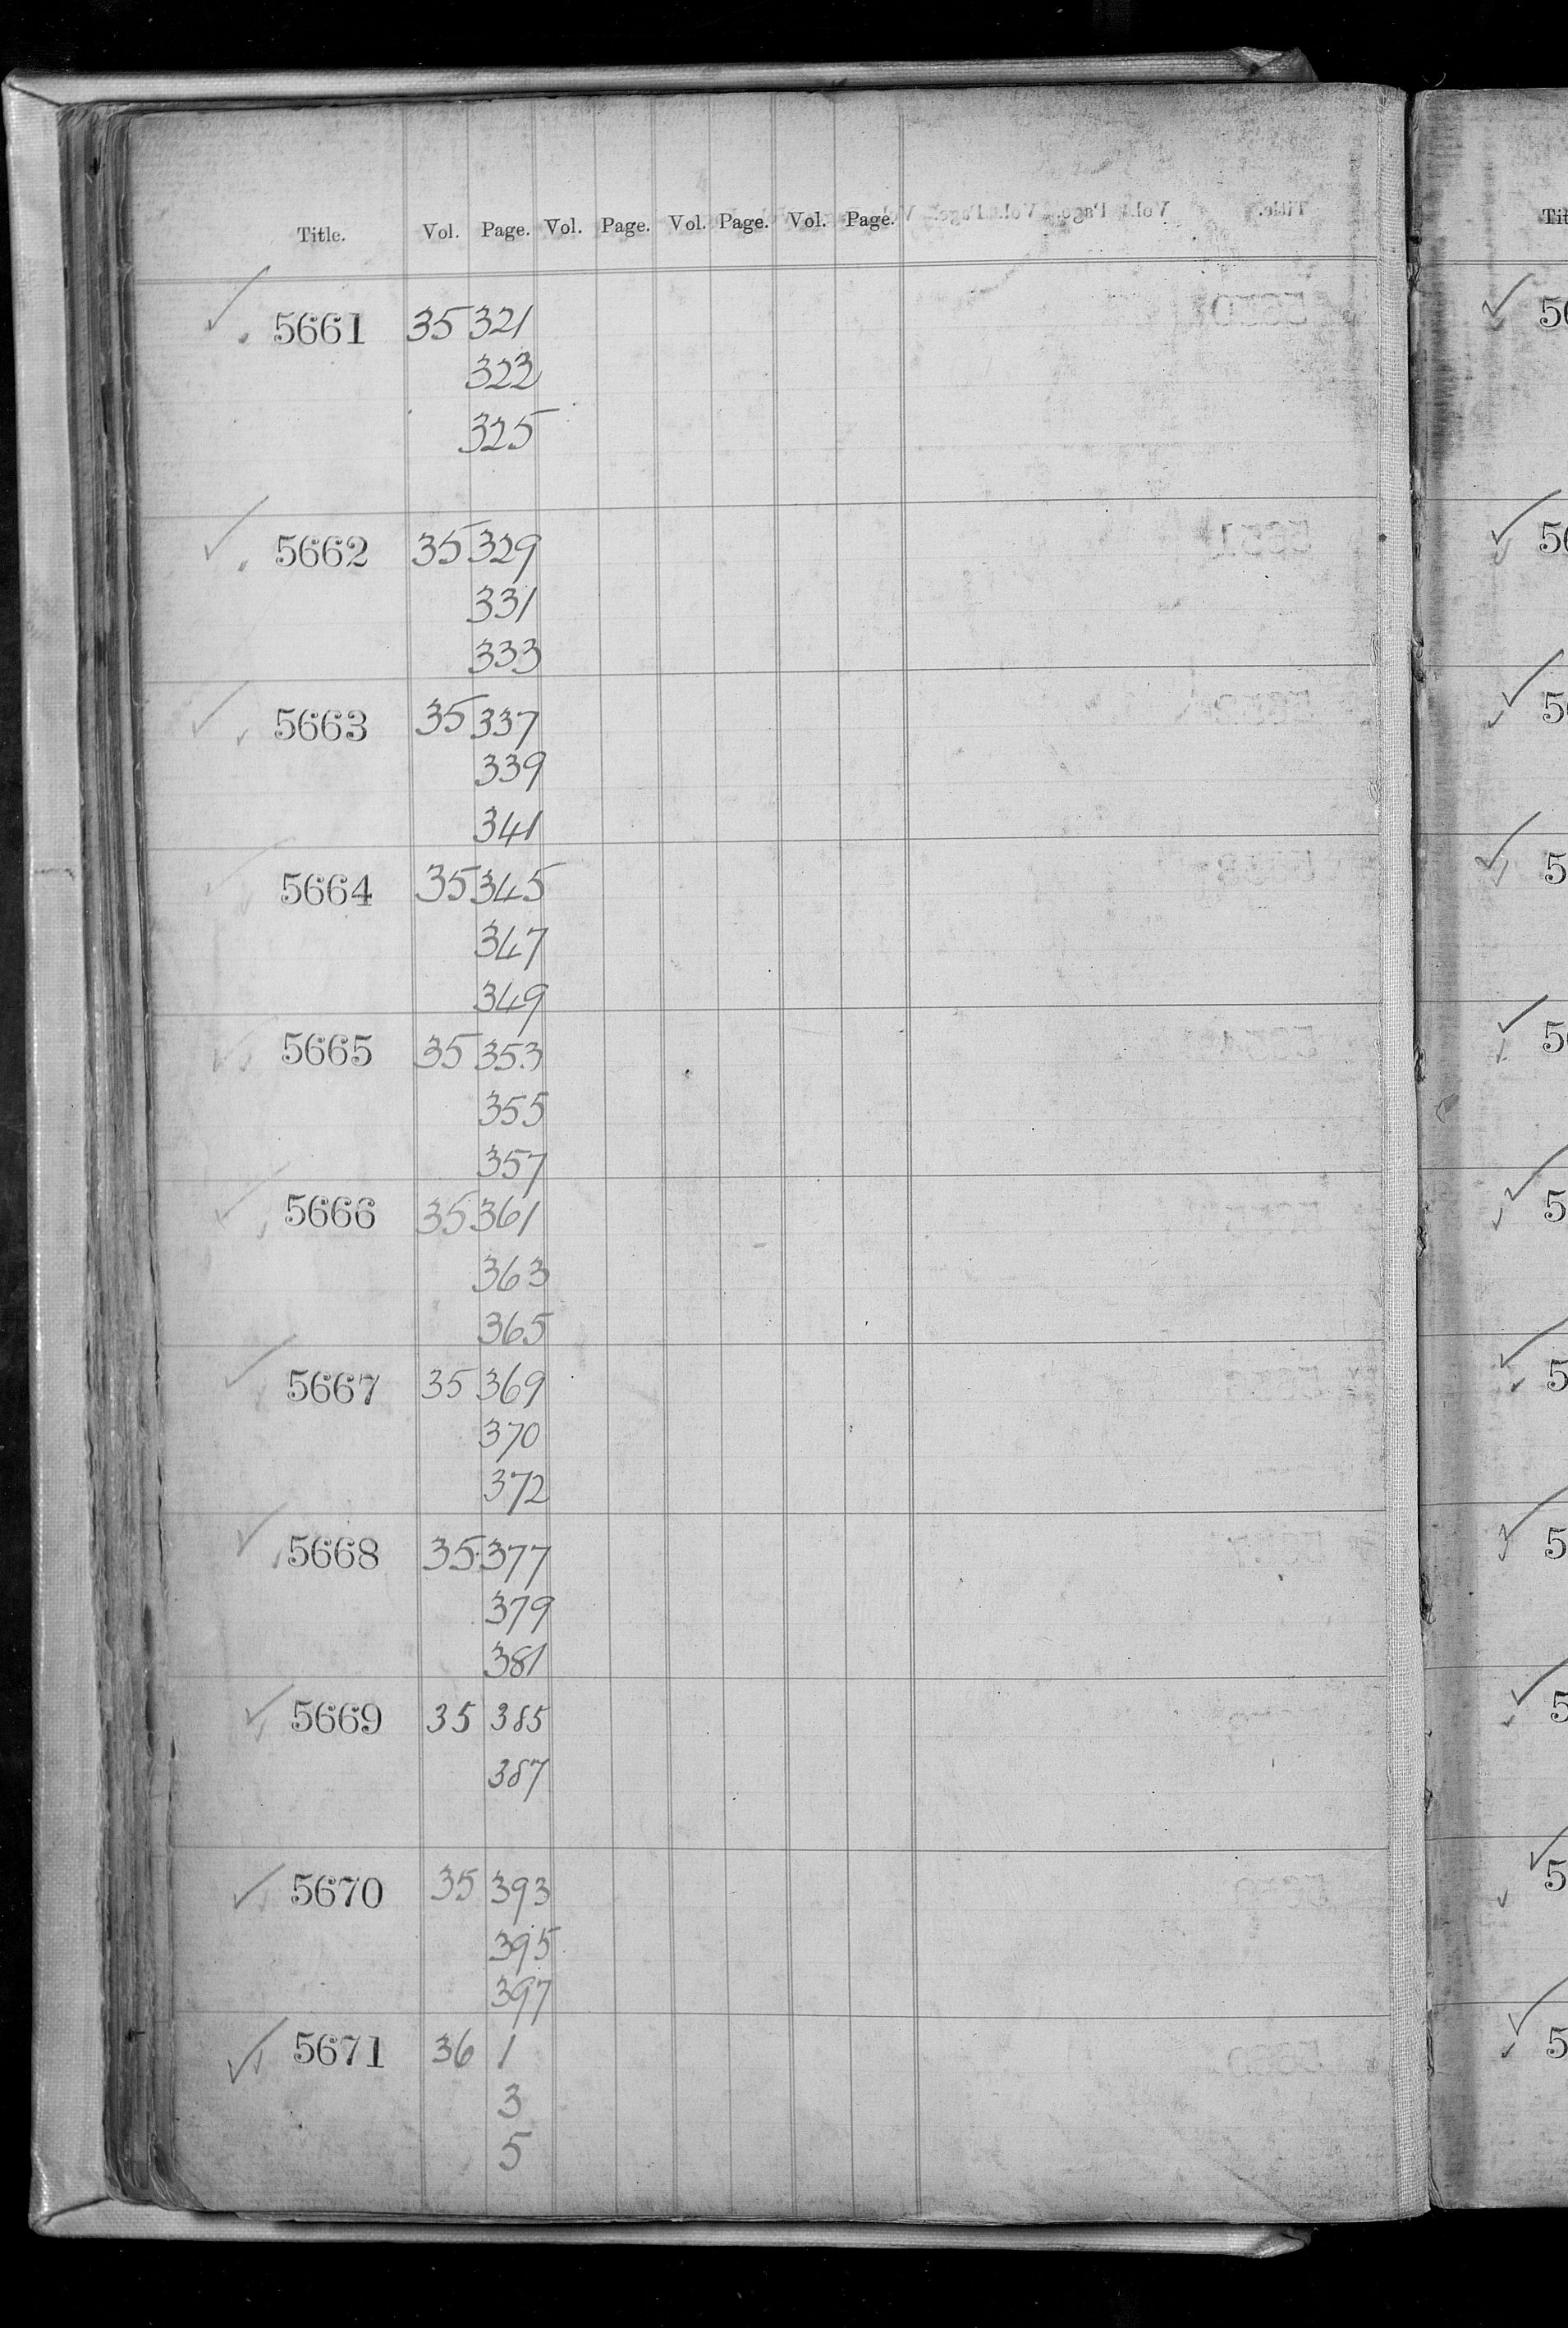 Title. Vol. Page. Vol. Page. Vol. Page. Vol. Page.
5661 35 321
323
325
5662 35 329
331
333
5663 35 337
339
341
5664 35 345
347
349
5665 35 353
355
357
5666 35 361
363
365
5667 35 369
370
372
5668 35 377
379
381
5669 35 385
387
5670 35 393
395
397
5671 36 1
3
5